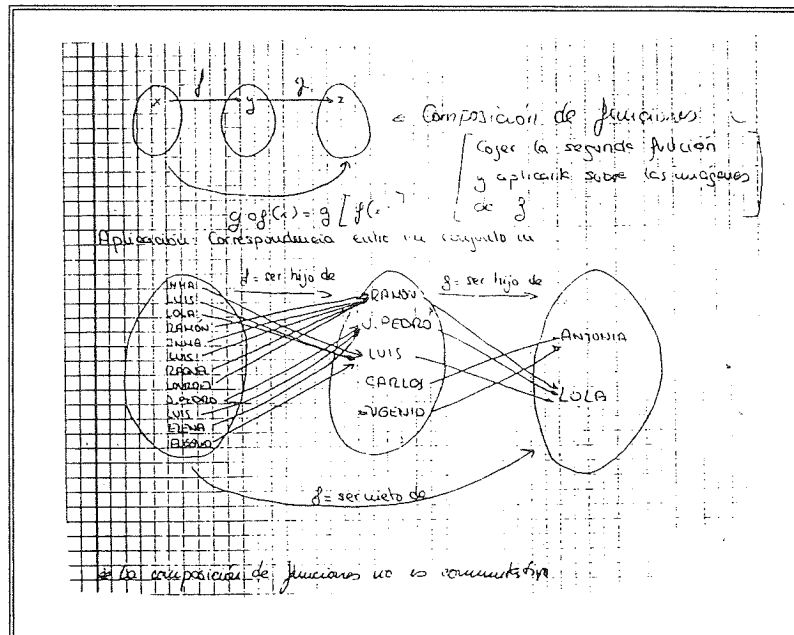 f g
x y z
Composición de funciones
Cojer la segunda función
y aplicarla sobre las imágenes
de f
g o f(x) = g [ f(x
Aplicación: Correspondencia entre un conjunto in
f = ser hijo de g = ser hijo de
INMA
LUIS
LOLA
RAMÓN
INMA
LUIS
RAQUEL
LOURDES
J.PEDRO
LUIS
ELENA
RAMÓN
J. PEDRO
LUIS
CARLOS
EUGENIO
ANTONIA
LOLA
f = ser nieto de
* La composición de funciones no es conmutativa